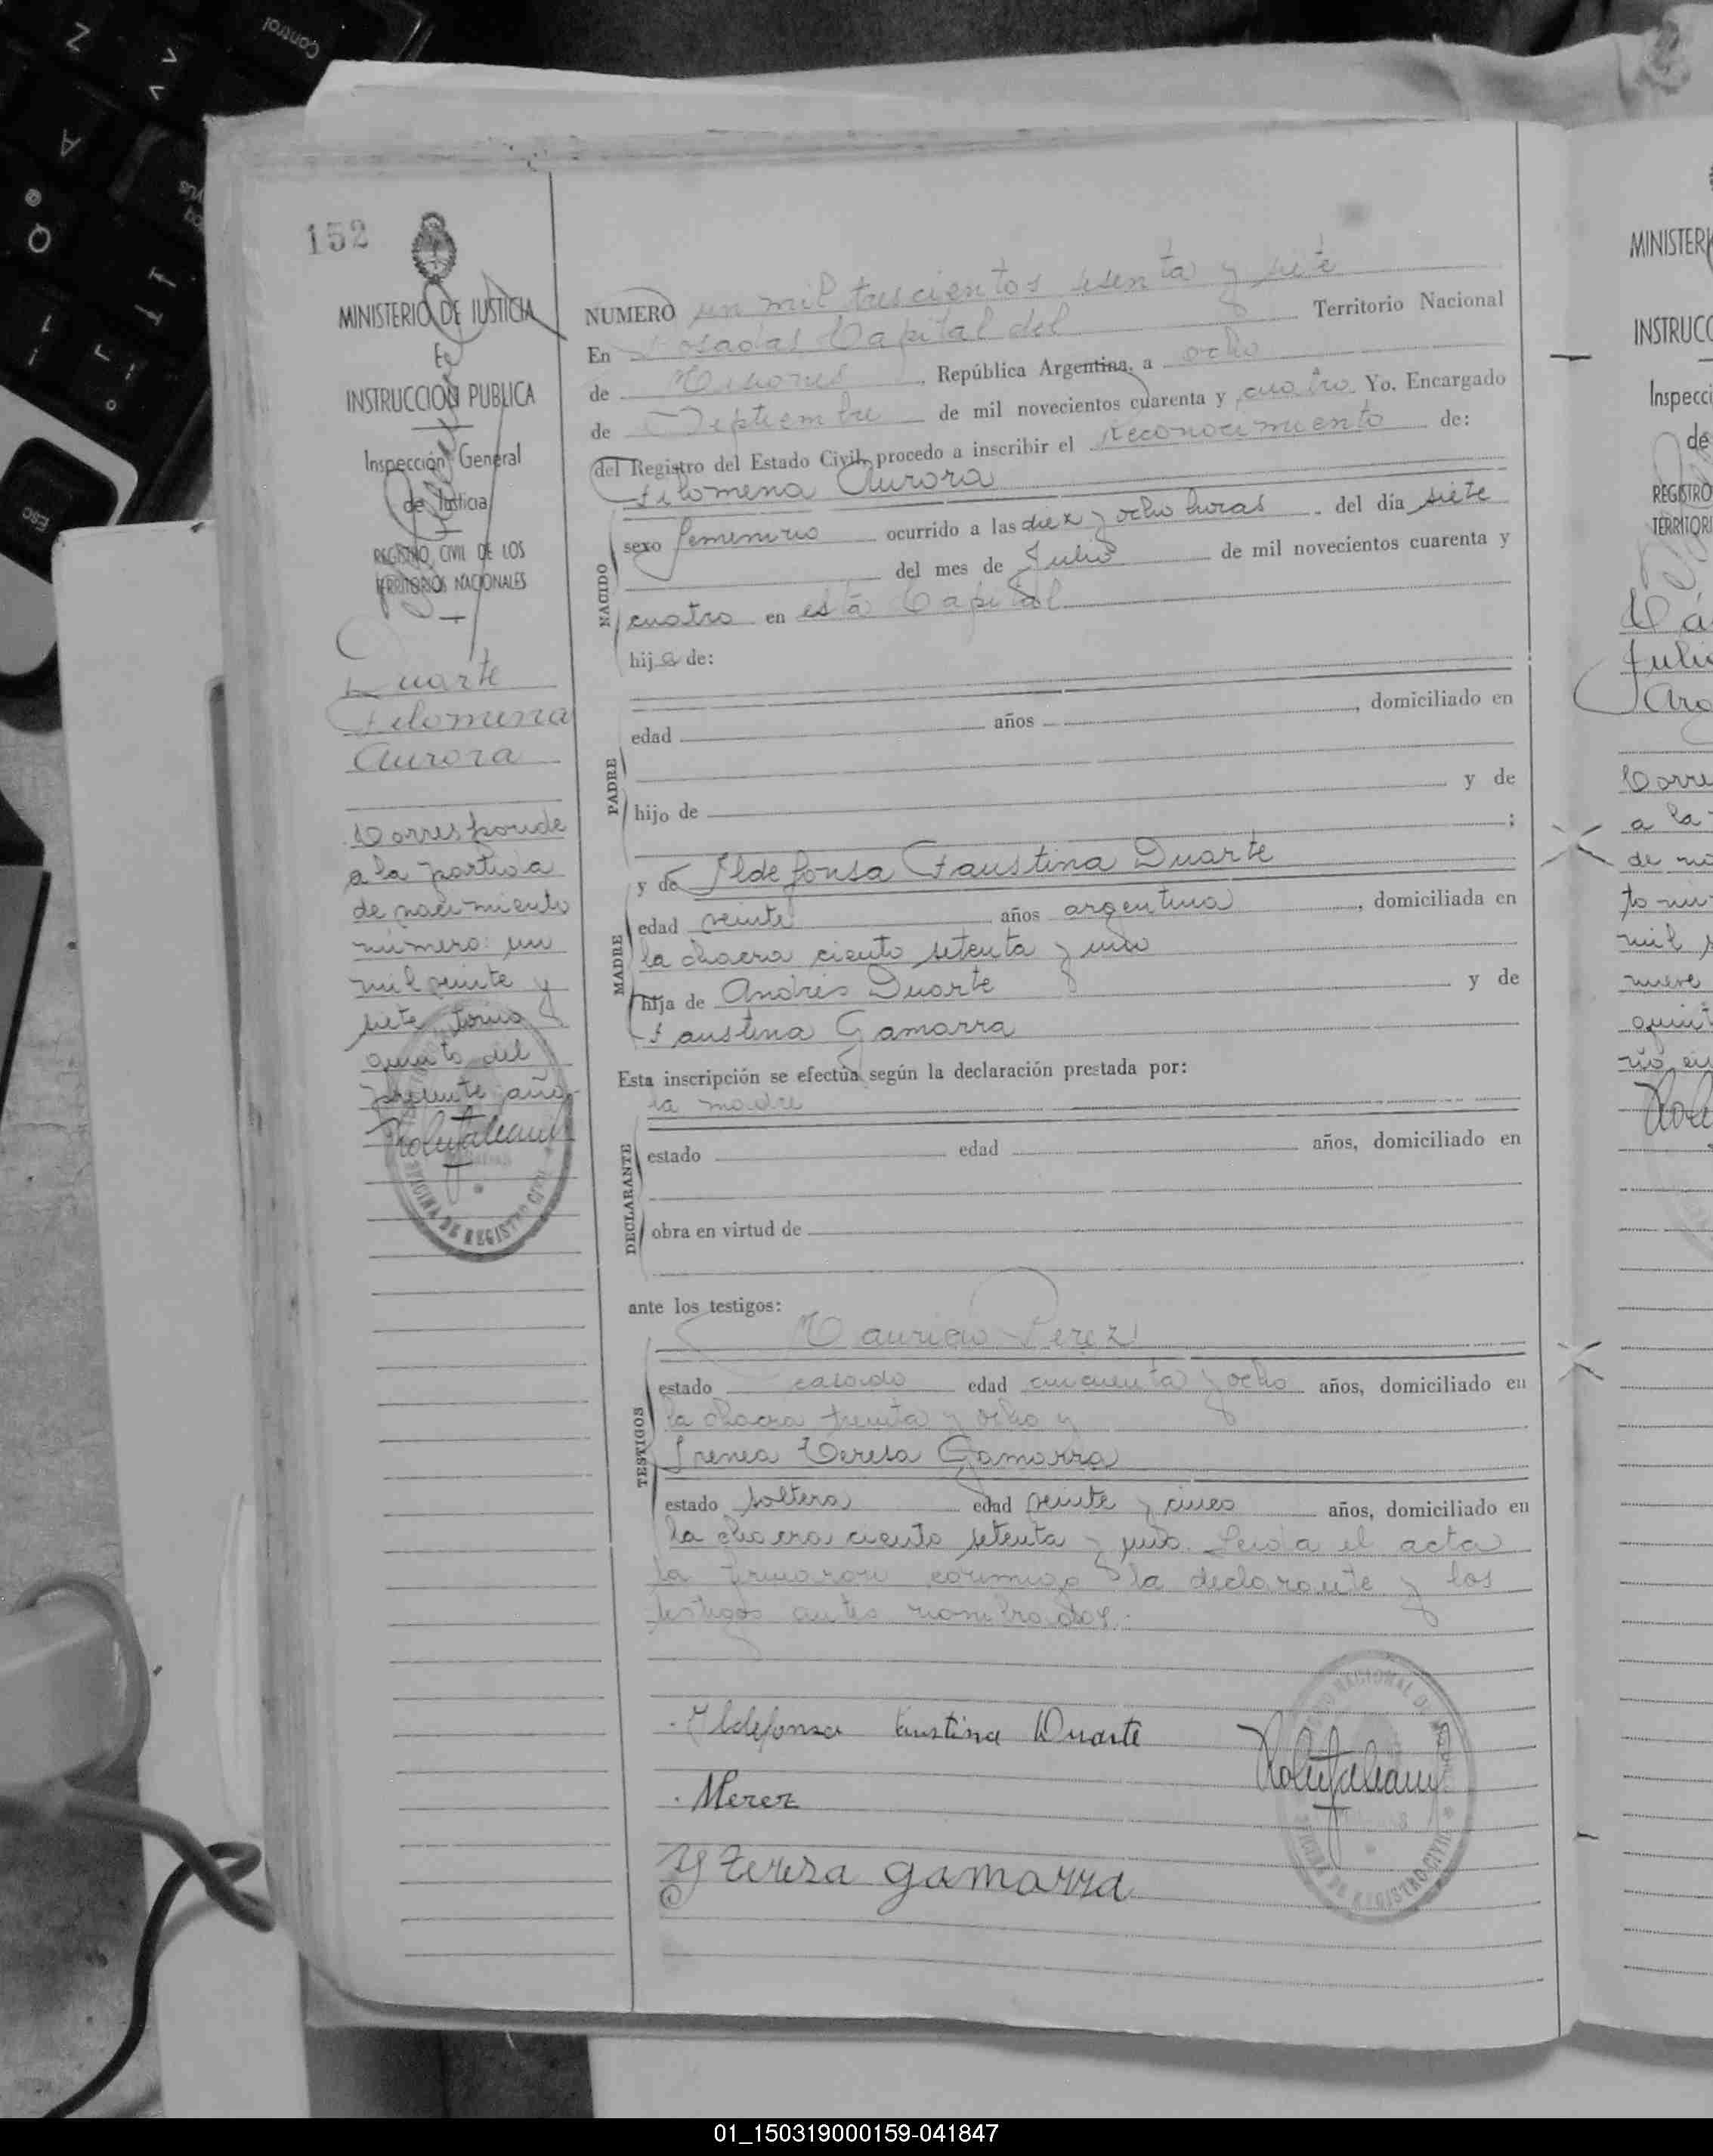 152
MINISTERIO DE JUSTICIA
E
INSTRUCCION PUBLICA
Inspección General
de Justicia
REGISTRO CIVIL DE LOS
TERRITORIOS NACIONALES
Reconocimiento
Duarte
Filomena
Aurora
Corresponde
a la partida
de nacimiento
número: un
mil veinte y
siete tomo
quinto del
presente año
OFICINA DE REGISTRO CIVIL
NUMERO un mil trescientos sesenta y siete
En Posadas Capital del Territorio Nacional
de Misiones, República Argentina, a ocho
de Septiembre de mil novecientos cuarenta y cuatro Yo. Encargado
del Registro del Estado Civil, procedo a inscribir el reconocimiento de:
Filomena Aurora
NACIDO
sexo femenino ocurrido a las diez y ocho horas . del día siete
del mes de Julio de mil novecientos cuarenta y
cuatro en esta Capital
hija de:
PADRE
edad años , domiciliado en
hijo de y de
;
y de Ildefonsa Faustina Duarte
MADRE
edad veinte años argentina , domiciliada en
la chacra ciento setenta y uno
hija de Andrés Duarte y de
Faustina Gamarra
Esta inscripción se efectúa según la declaración prestada por:
la madre
DECLARANTE
estado edad años, domiciliado en
obra en virtud de
ante los testigos:
Mauricio Perez
TESTIGOS
estado casado edad cincuenta y ocho años, domiciliado en
la chacra treinta y ocho y
Irenea Teresa Gamarra
estado soltera edad veinte y cinco años, domiciliado en
la chacra ciento setenta y uno. Leida el acta
la firmaron conmigo la declarante y los
testigos antes nombrados.
Ildefonsa Faustina Duarte
MPerez
Y Teresa gamarra
OFICINA DE REGISTRO CIVIL
MINISTERI
INSTRUCC
Inspecci
de
REGISTRO
TERRITORI
Juli
Corre
a la
de na
mil
nueve
quint
Control
Z
A
Q
Esc
01_150319000159-041847